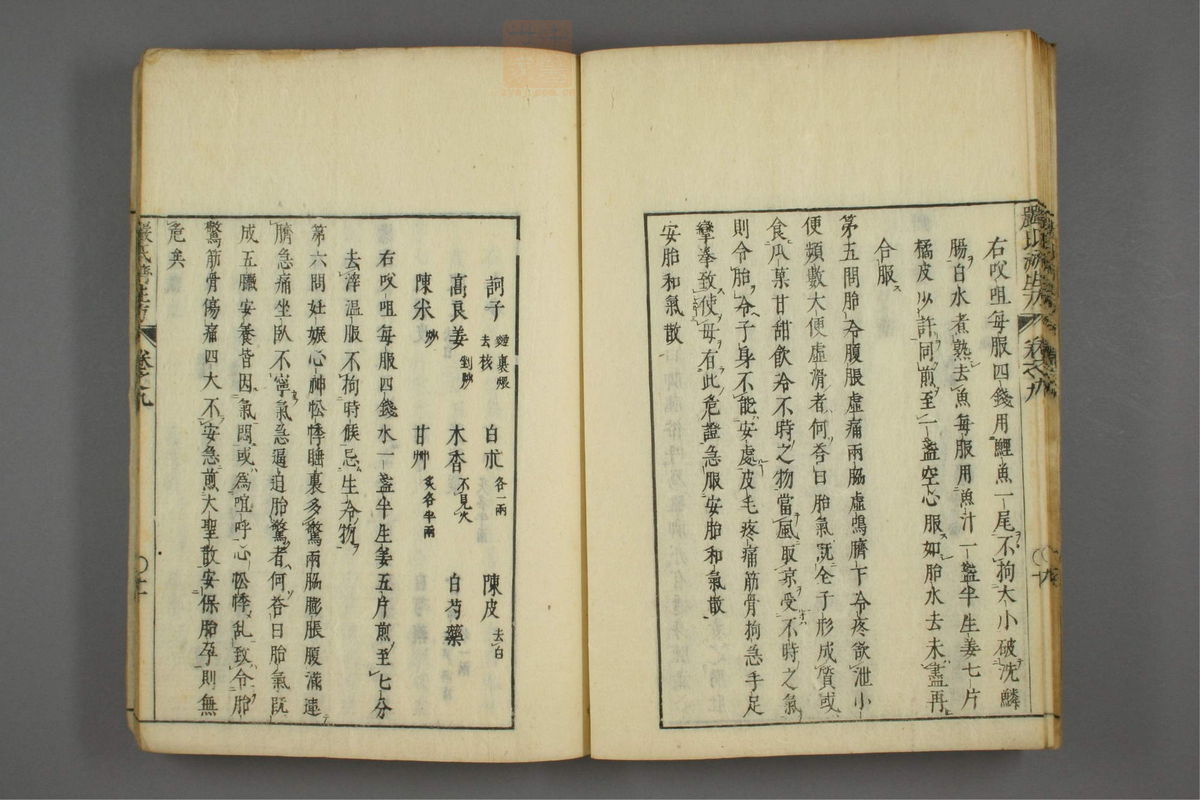 右㕮咀每服四錢用鯉魚一尾不拘大小破洗鱗
腸白水煮熟去魚每服用魚汁一盞半生姜七片
橘皮少許同煎至一盞空心服如胎水去未盡再
合服
第五問胎冷腹脹虛痛兩脇虛鳴臍下冷疼欲泄小
便頻數大便虛滑者何荅曰胎氣既全子形成質或
食瓜菓甘甜飲冷不時之物當風取凉受不時之氣
則令胎冷子身不能安處皮毛疼痛筋骨拘急手足
攣拳致使母有此危證急服安胎和氣散
安胎和氣散
訶子 麵裹煨去核 白朮 各一兩 陳皮 去白
高良姜 剉炒 木香 不見火 白芍藥
陳米 炒 甘艸 炙各半兩
右㕮咀每服四錢水一盞半生姜五片煎至七分
去滓温服不拘時候忌生冷物
第六問妊娠心神忪悸睡裏多驚兩脇膨脹腹滿連
臍急痛坐臥不寧氣急逼迫胎驚者何荅曰胎氣既
成五臟安養皆因氣悶或為喧呼心忪悸亂致令胎
驚筋骨傷痛四大不安急煎大聖散安保胎孕則無
危矣
嚴氏濟生方 卷之九